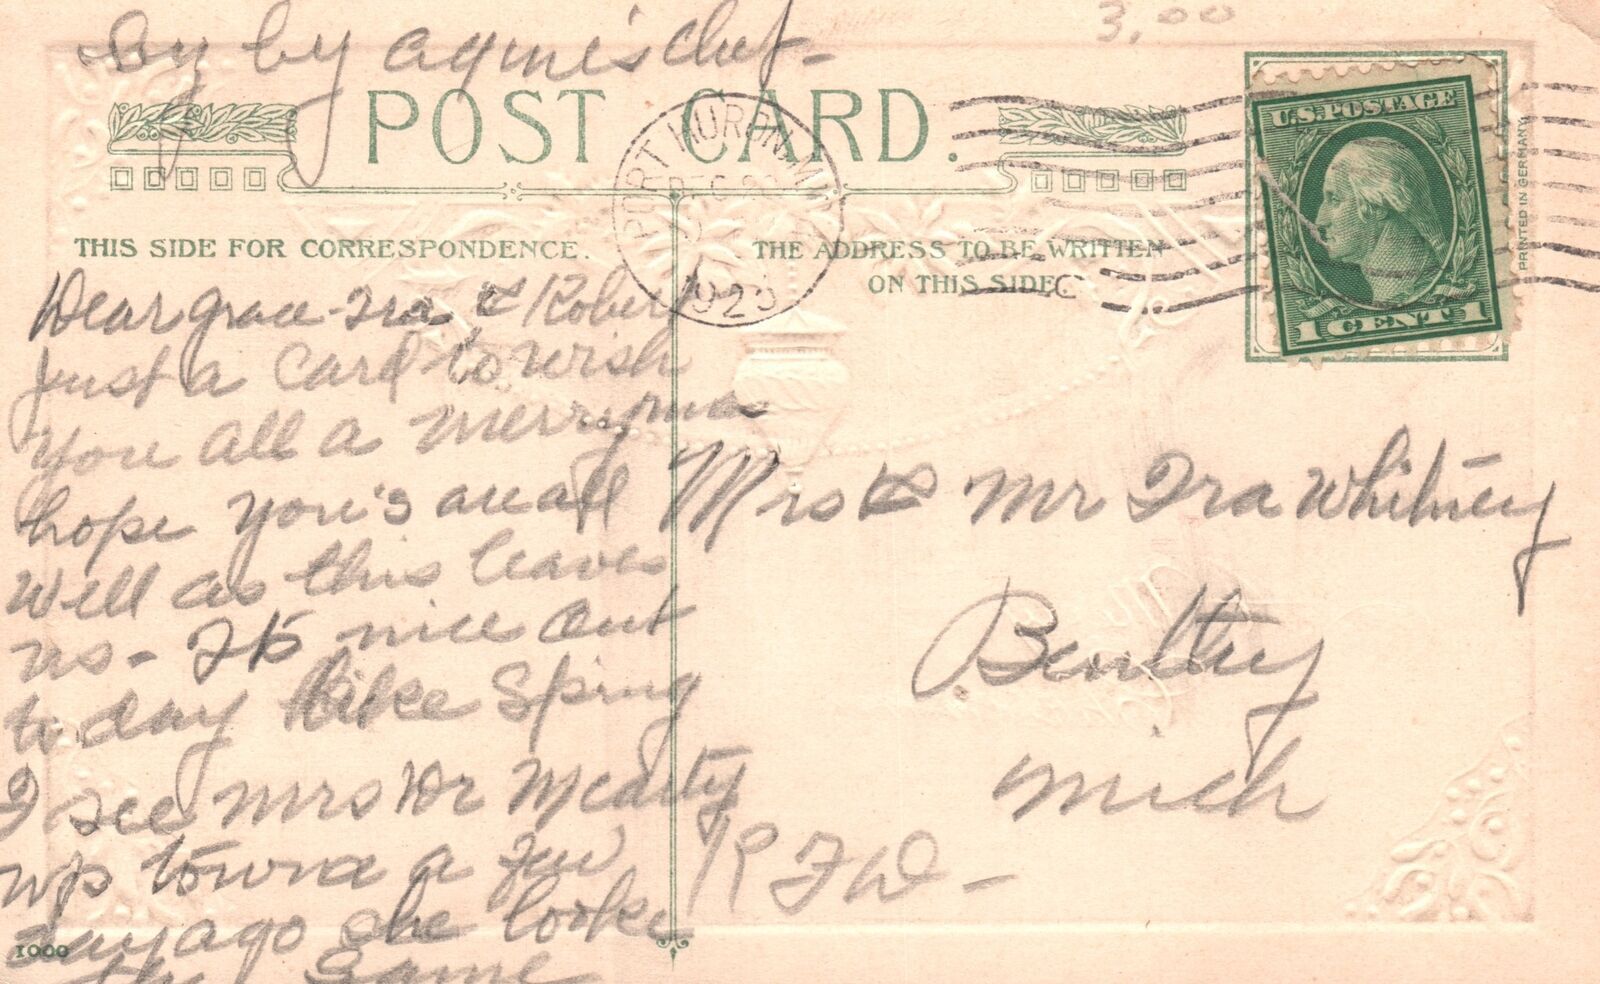 By by Agnes Chet -
3.00
POST CARD.
PORT HURON, MICH
DEC
1923
U.S. POSTAGE
1 CENT 1
PRINTED IN GERMANY
THIS SIDE FOR CORRESPONDENCE.
THE ADDRESS TO BE WRITTEN
ON THIS SIDE.
Dear Grace - Ira & Robert
Just a Card to wish
you all a Merry mas
hope you's are all
well as this leaves
us - Its nice out
to day like Spring
I see Mrs Dr McCarty
up town a few
day ago She looke
the Same
Mrs & Mr Ira Whitney
Bentley
Mich
R F D -
1000